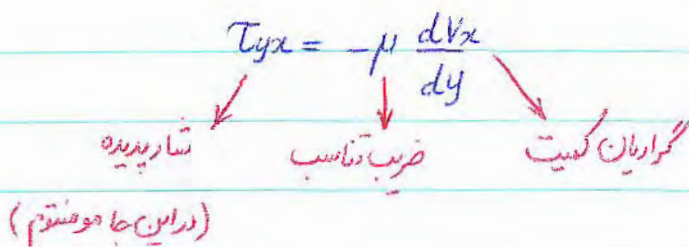 τyx = -μ dVx/dy
شار پدیده ضریب تناسب گرادیان کمیت
(در این جا مومنتوم)